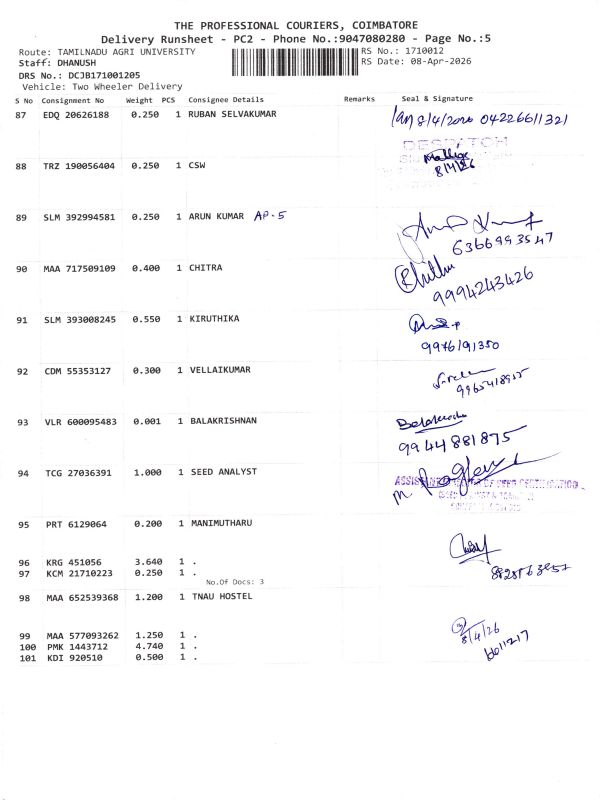 THE PROFESSIONAL COURIERS, COIMBATORE
Delivery Runsheet - PC2 - Phone No.:9047080280 - Page No.:5
Route: TAMILNADU AGRI UNIVERSITY RS No.: 1710012
Staff: DHANUSH RS Date: 08-Apr-2026
DRS No.: DCJB171001205
Vehicle: Two Wheeler Delivery
S No Consignment No Weight PCS Consignee Details Remarks Seal & Signature
87 EDQ 20626188 0.250 1 RUBAN SELVAKUMAR 8/4/2026 04226611321
DESPATCH
88 TRZ 190056404 0.250 1 CSW
8/4/26
89 SLM 392994581 0.250 1 ARUN KUMAR AP-5
6366993547
90 MAA 717509109 0.400 1 CHITRA Chithra
9994243426
91 SLM 393008245 0.550 1 KIRUTHIKA
9976191350
92 CDM 55353127 0.300 1 VELLAIKUMAR
93 VLR 600095483 0.001 1 BALAKRISHNAN
9944881875
94 TCG 27036391 1.000 1 SEED ANALYST
95 PRT 6129064 0.200 1 MANIMUTHARU
96 KRG 451056 3.640 1 .
97 KCM 21710223 0.250 1 .
No.Of Docs: 3
98 MAA 652539368 1.200 1 TNAU HOSTEL
99 MAA 577093262 1.250 1 . 8/4/26
100 PMK 1443712 4.740 1 .
101 KDI 920510 0.500 1 .